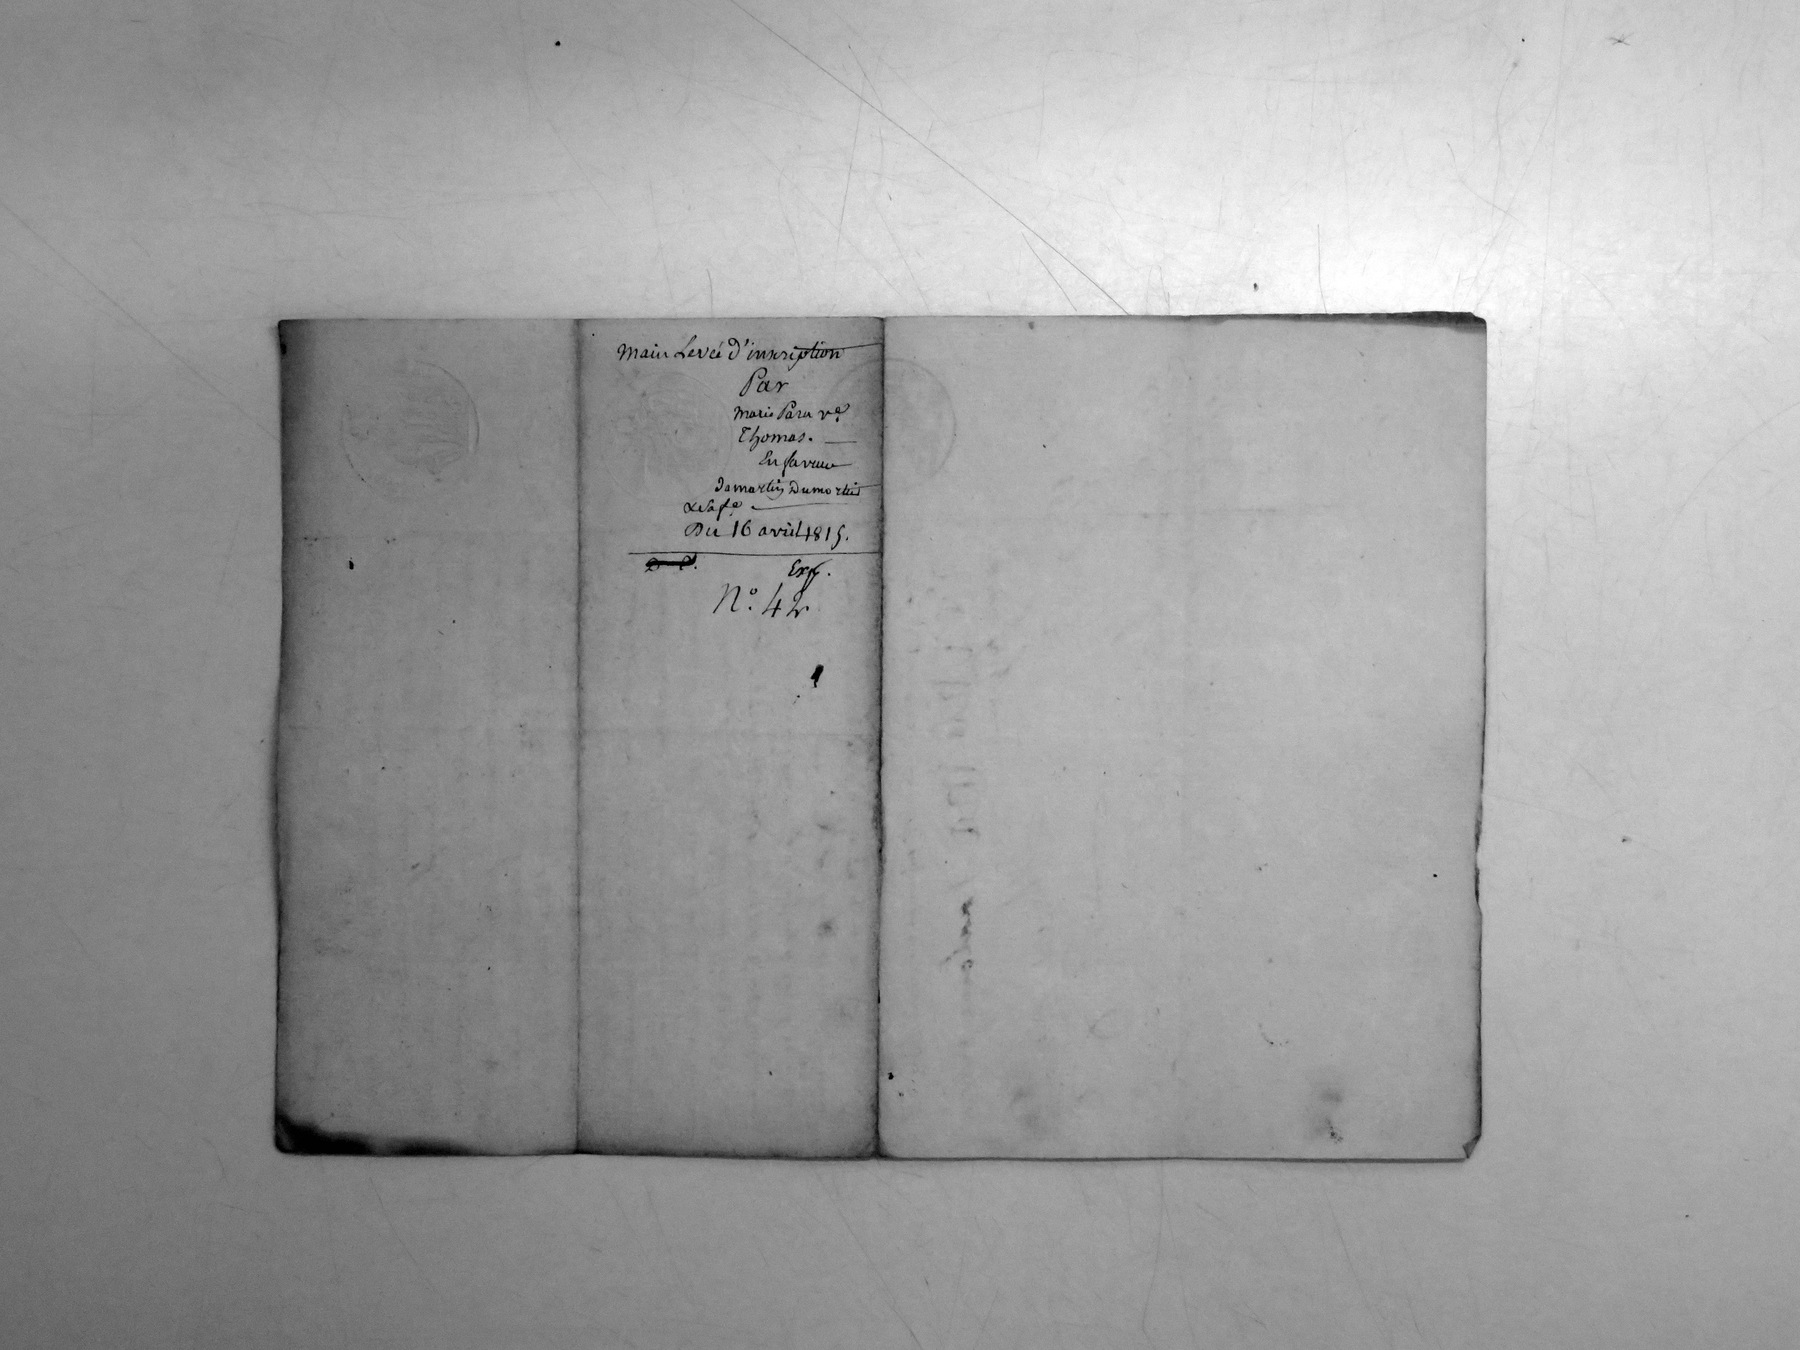 Main Levée D'inscription
Par
Marie Para ve.
Thomas.
En faveur
Damartin Dumortie
& Safe.
Du 16 avril 1815.
Exp.
N.º 42